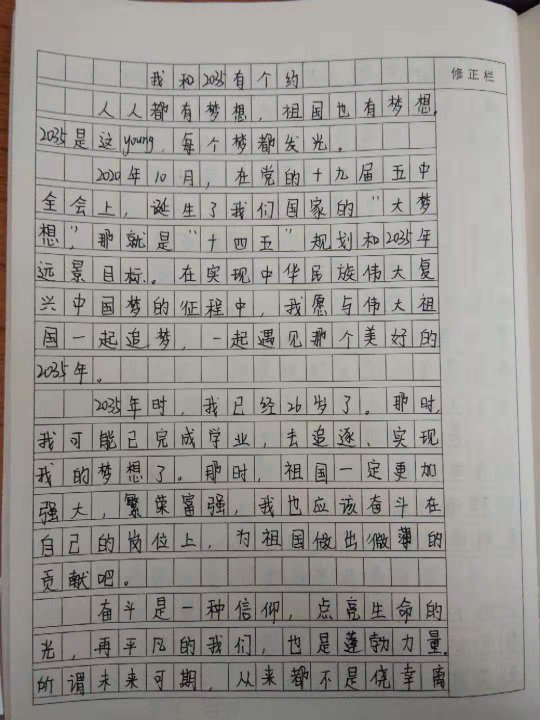 修正栏
我和2035有个约
人人都有梦想，祖国也有梦想。
2035是这young，每个梦都发光。
2020年10月，在党的十九届五中
全会上，诞生了我们国家的“大梦
想”，那就是“十四五”规划和2035年
远景目标。在实现中华民族伟大复
兴中国梦的征程中，我愿与伟大祖
国一起追梦，一起遇见那个美好的
2035年。
2035年时，我已经26岁了。那时，
我可能已完成学业，去追逐、实现
我的梦想了。那时，祖国一定更加
强大，繁荣富强，我也应该奋斗在
自己的岗位上，为祖国做出微薄的
贡献吧。
奋斗是一种信仰，点亮生命的
光，再平凡的我们，也是蓬勃力量。
所谓未来可期，从来都不是侥幸离